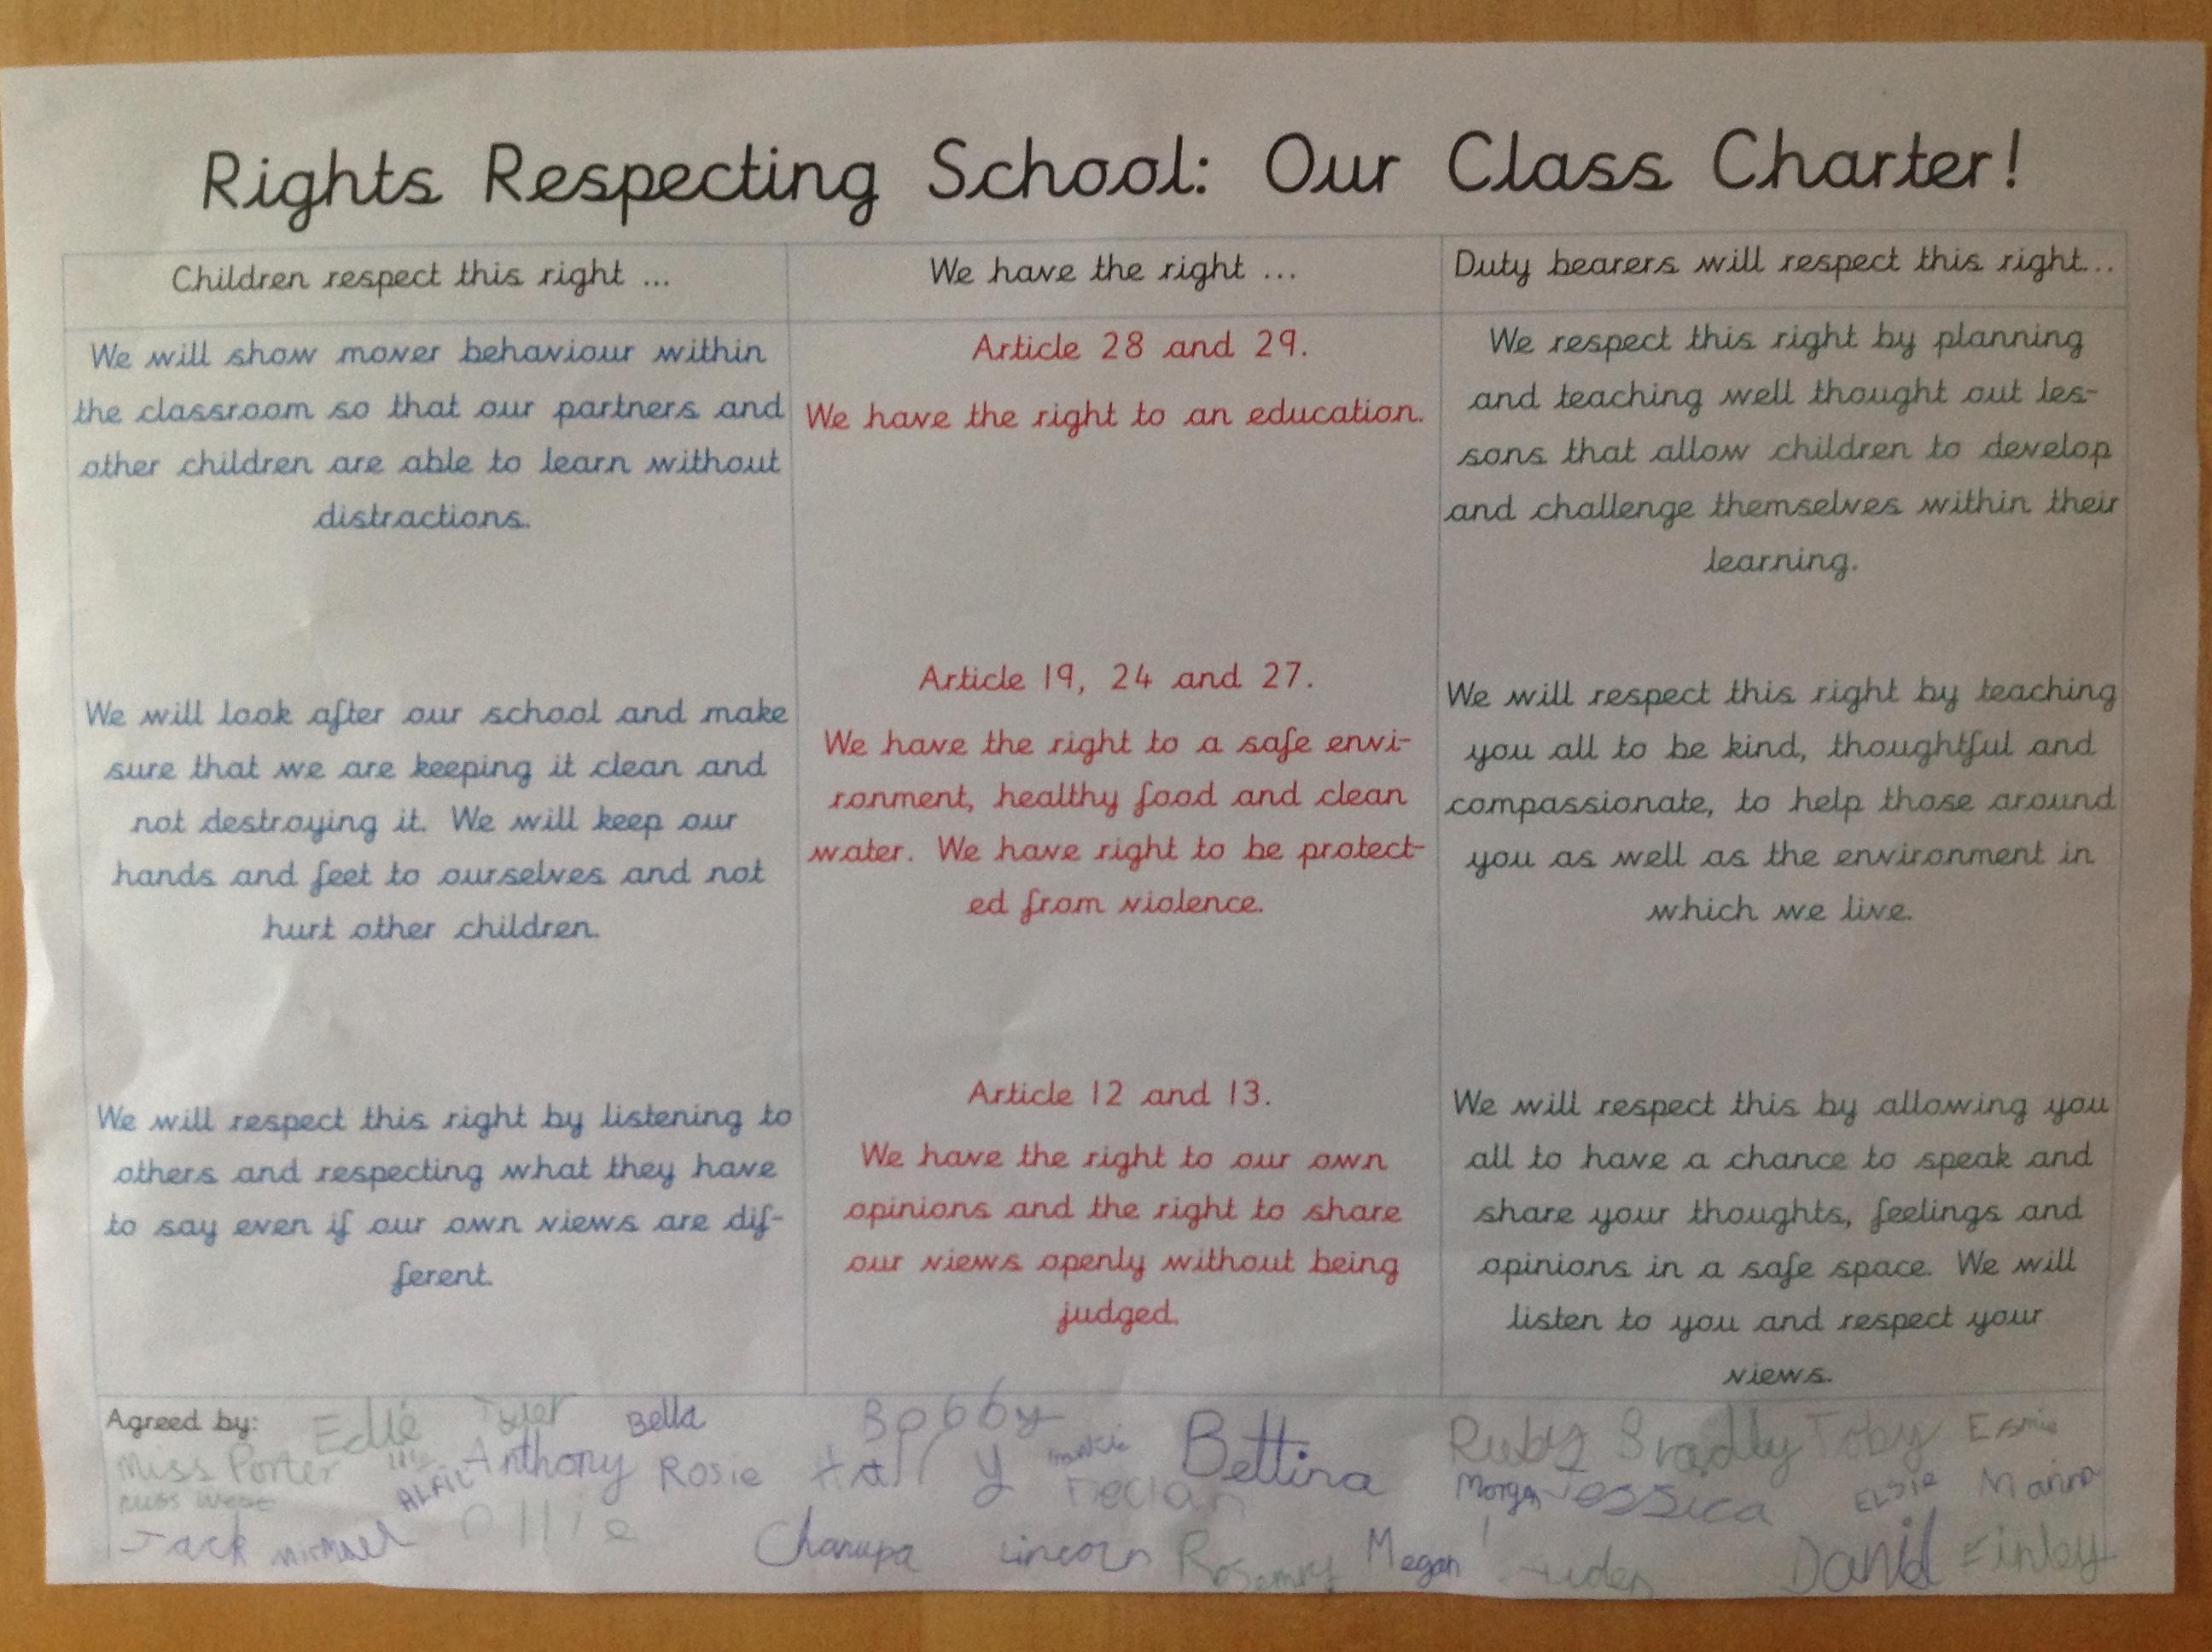 Rights Respecting School: Our Class Charter!
Children respect this right ...
We will show mover behaviour within
the classroom so that our partners and
other children are able to learn without
distractions.
We will look after our school and make
sure that we are keeping it clean and
not destroying it. We will keep our
hands and feet to ourselves and not
hurt other children.
We will respect this right by listening to
others and respecting what they have
to say even if our own views are dif-
ferent.
We have the right ...
Article 28 and 29.
We have the right to an education.
Article 19, 24 and 27.
We have the right to a safe envi-
ronment, healthy food and clean
water. We have right to be protect-
ed from violence.
Article 12 and 13.
We have the right to our own
opinions and the right to share
our views openly without being
judged.
Duty bearers will respect this right...
We respect this right by planning
and teaching well thought out les-
sons that allow children to develop
and challenge themselves within their
learning.
We will respect this right by teaching
you all to be kind, thoughtful and
compassionate, to help those around
you as well as the environment in
which we live.
We will respect this by allowing you
all to have a chance to speak and
share your thoughts, feelings and
opinions in a safe space. We will
listen to you and respect your
views.
Agreed by: Edie Tyler Bella Bobby Ruby Bradly Toby Esmie
Miss Porter Anthony Rosie Harry Bettina
Miss West Alfie Declan Morgan Jessica Elsie
Jack Michael Ollie Chanupa Lincoln Megan David Finley